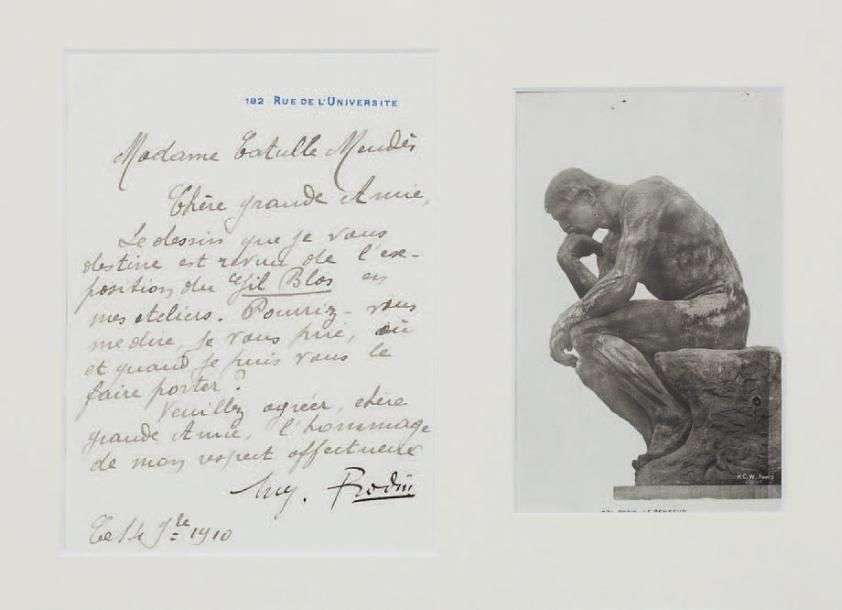 182 RUE DE L'UNIVERSITE
Madame Catulle Mendès
Chère grande Amie,
Le dessin que je vous
destine est revenu de l'ex-
position du Gil Blas en
mes ateliers. Pourriez-vous
me dire, je vous prie, où
et quand je puis vous le
faire porter ?
Veuillez agréer, chère
grande Amie, l'hommage
de mon respect affectueux
Aug. Rodin
Ce 14 1910
PARIS. LE PENSEUR